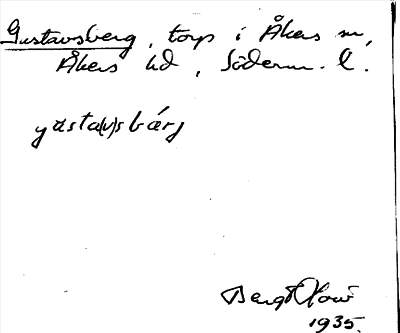 Gustavsberg, torp i Åkers sn,
Åkers hd, Söderm. l.
gusta(v)sbärj
Bengt
1935.